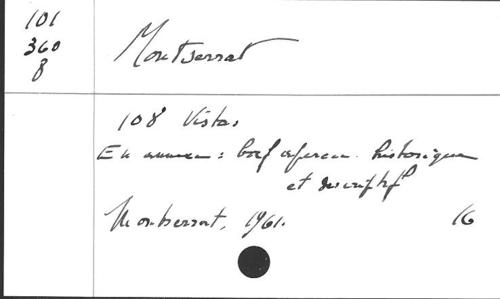 101
360
8
Montserrat
108 Vistas
En annexe : bref aperçu historique
et descriptif
Montserrat, 1961.
16